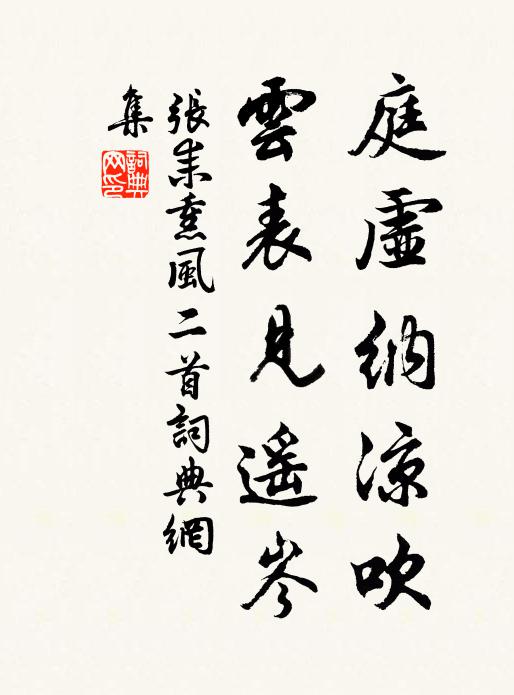 庭虛納涼吹
雲表見遥岑
張耒熏風二首詞典網
集
詞典
网印